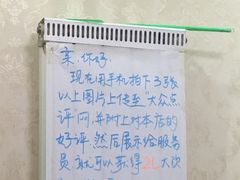 亲，你好，
现在用手机拍下3张
以上图片上传至“大众点
评网，并附上对本店的
好评，然后展示给服务
员就可以获得